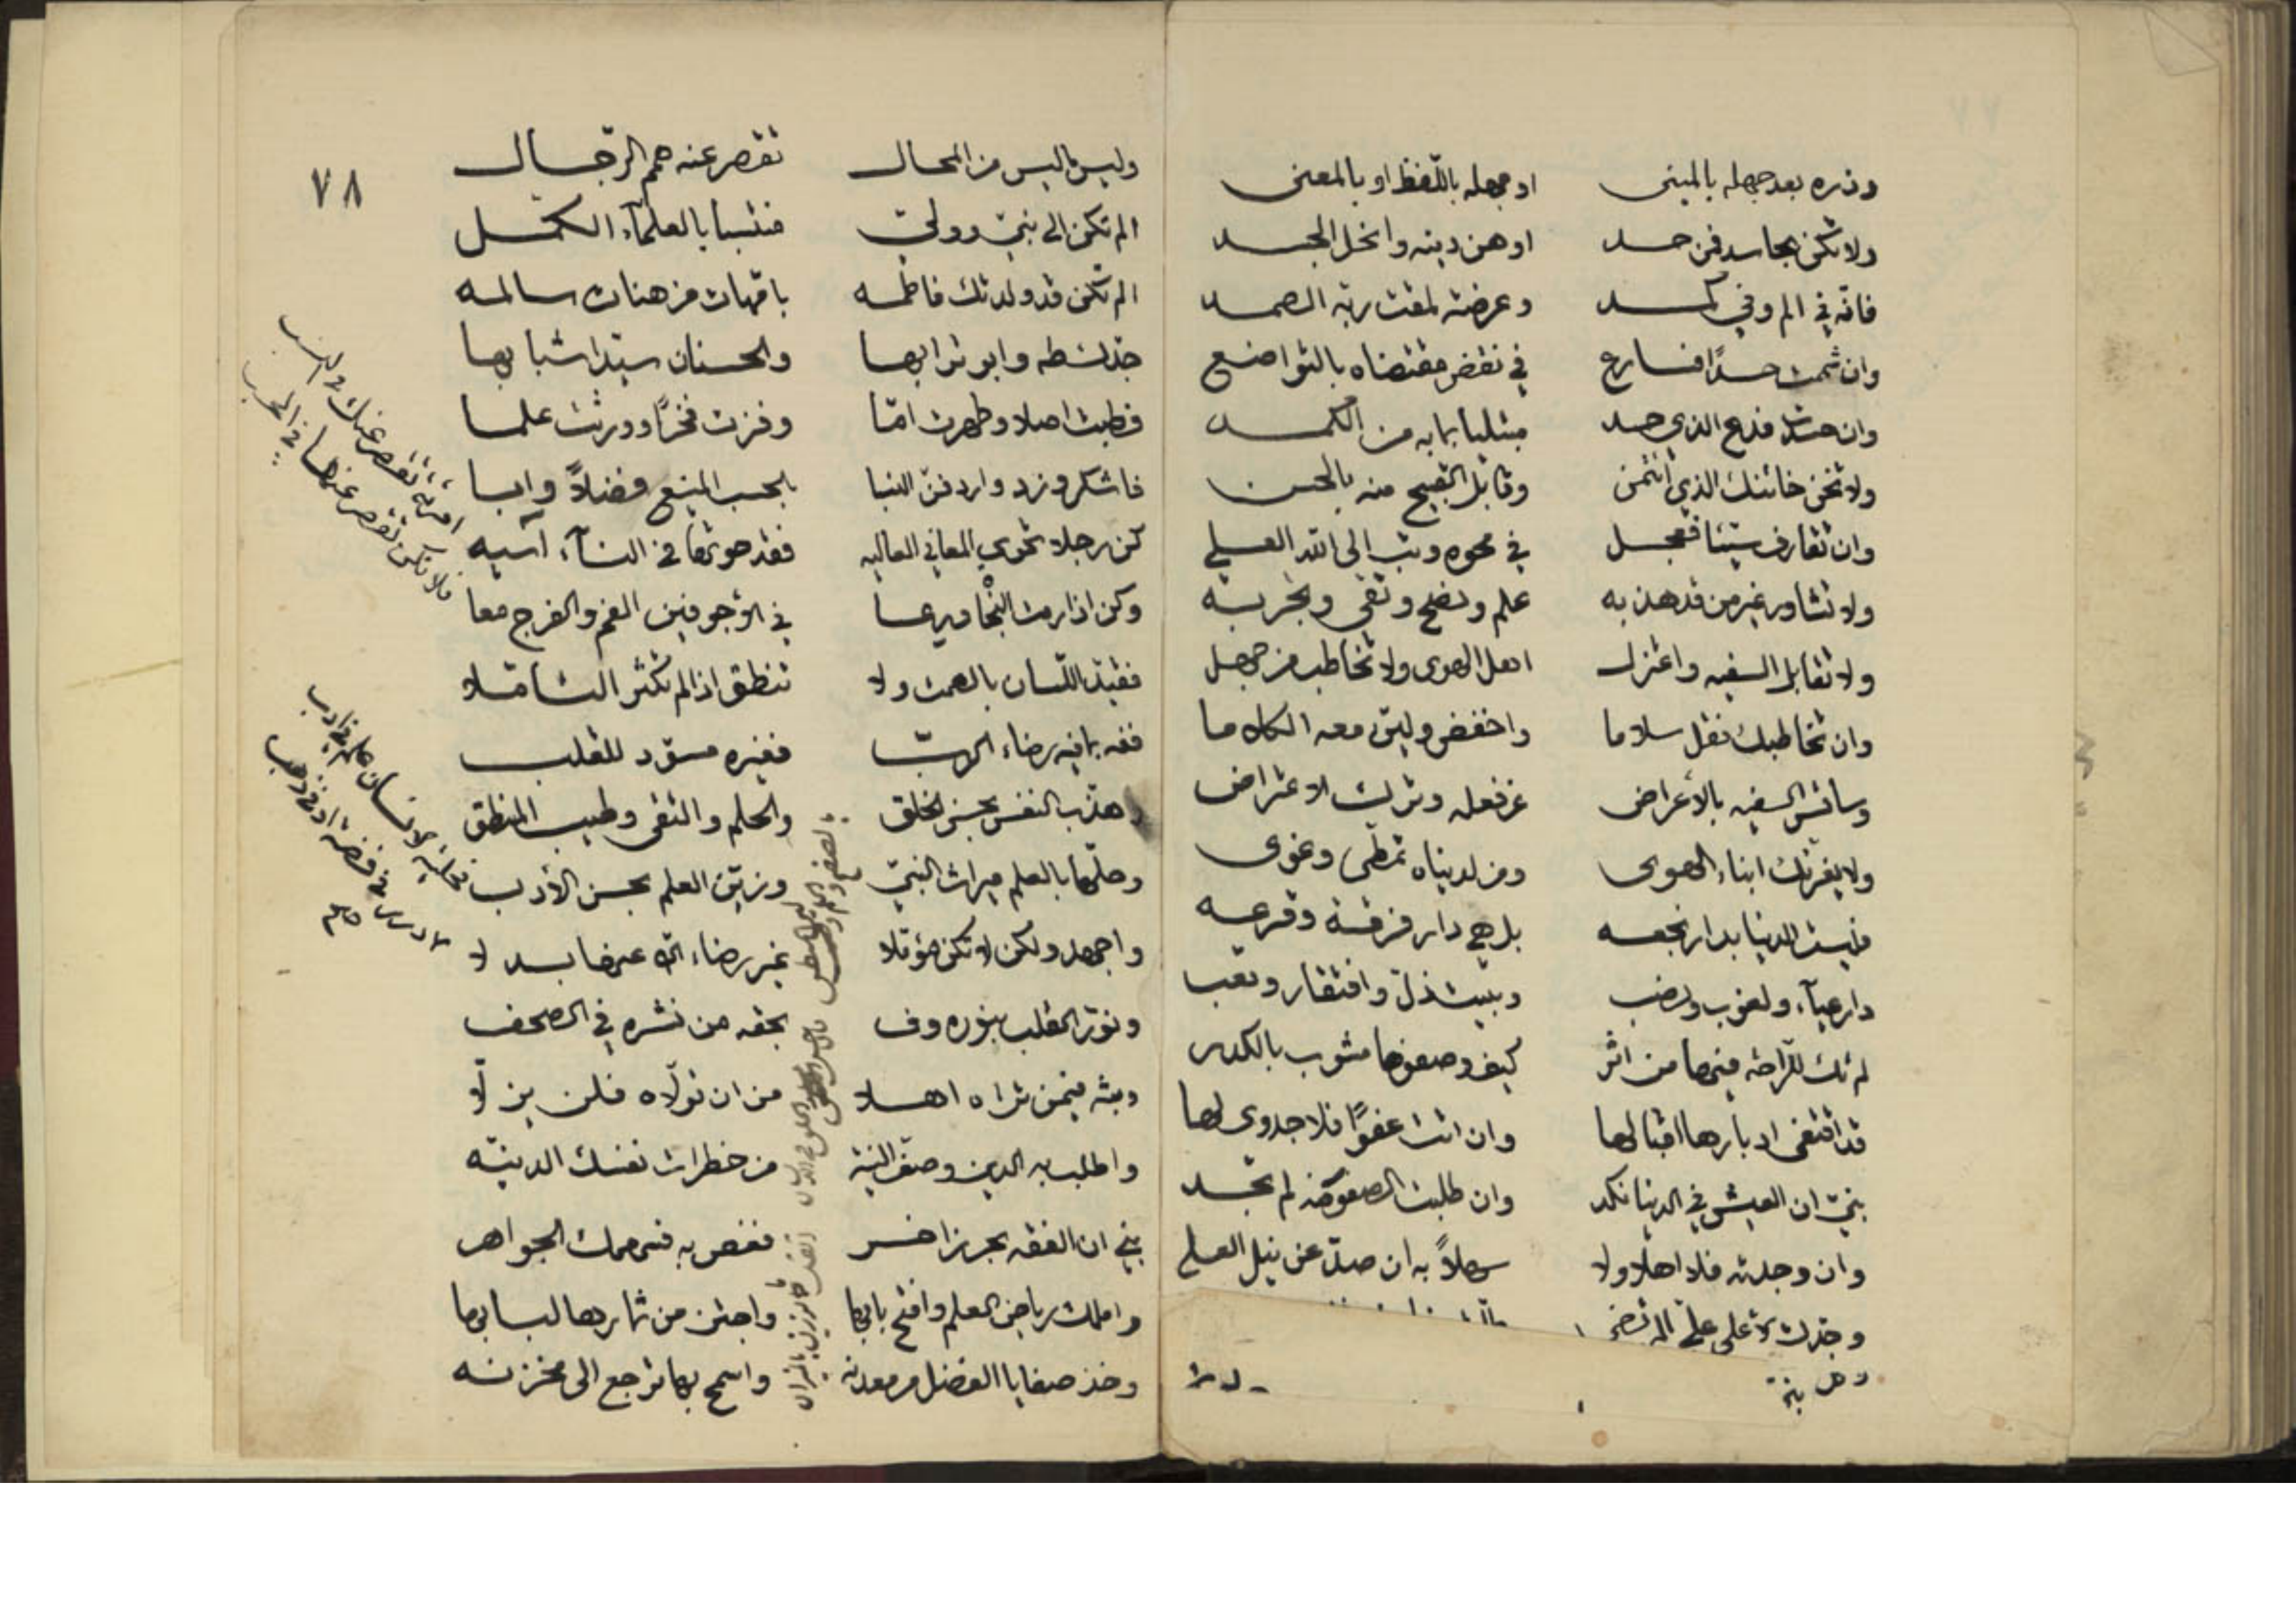 وذره بعد جهله بالمبنى او جهله باللفظ او بالمعنى
ولا تكن بحاسد فمن حسد اوهن دينه وانحل الجسد
فانه في الم وفي كمد وعرضة لمقت ربه الصمد
وان شممت حسدا فسارع في نقض مقتضاه بالتواضع
وان حسدت فدع الذي حسد مبتليا بما به من الكمد
ولا تخن خائنك الذي ائتمن وقابل القبيح منه بالحسن
وان تقارف سيئا فعجل في محوه وتب الى الله العلي
ولا تشاور غير من قد هذبه علم ونصح وتقى وتجربه
ولا تقابل السفيه واعتزل اهل الهوى ولا تخاطب من جهل
وان تخاطبك فقل سلاما واخفض ولين معه الكلاما
وسائس السفيه بالأعراض عن فعله وترك الاعتراض
ولا يغرنك ابناء الهوى ومن لدنياه تمطى وغوى
فليست الدنيا بدار نجعه بل هي دار فرقة وقرعه
دار عياء ولغوب ونصب وبيت ذل وافتقار وتعب
لم تك للراحة فيها من اثر كيف وصفوها مشوب بالكدر
قد اقتفى ادبارها اقبالها وان اتت عفوا فلا جدوى لها
بني ان العيش في الدنيا نكد وان طلبت الصفو منه لم تجد
وان وجدته فلا اهلا ولا سهلا به ان صد عن نيل العلى
وجدك الأعلى علي المرتضى
٧٨
وليس ما ليس من المحال تقصر عنه همم الرجال
الم تكن الى نبي وولي منتسبا بالعلماء الكمل
الم تكن قد ولدتك فاطمه بامهات من هنات سالمه
جدك طه وابو ترابها والحسنان سيدا شبابها
فطبت اصلا وطهرت اما وفزت فخرا وورثت علما
فاشكر وزد واردفن النسبا بالحسب المنيع فضلا وابا
كن رجلا تحوي المعاني العاليه فقد حوتها في النساء آسيه
وكن اذا رمت النجا ميرعا في الأجوفين الفم والفرج معا
فقيد اللسان بالصمت ولا تنطق اذا لم تكثر التأملا
ففه بما فيه رضاء الرب فغيره مسود للقلب
وهذب النفس بحسن الخلق والحلم والتقى وطيب المنطق
وحلها بالعلم ميراث النبي وزين العلم بحسن الأدب
واجهد ولكن لا تكن مؤملا غير رضاء الله عنها بدلا
ونور القلب بنوره وف بحقه من نشره في الصحف
وبثه فيمن تراه اهلا من ان تولاه فلن يزلا
واطلب به الدين وصف النية من خطرات نفسك الدنيه
بني ان الفقه بحر زاخر فغص به فهمك الجواهر
واملك رياض العلم وافتح بابها واجتن من ثمارها لبابها
وخذ صفايا الفضل من معدنه واسمح بها ترجع الى مخزنه